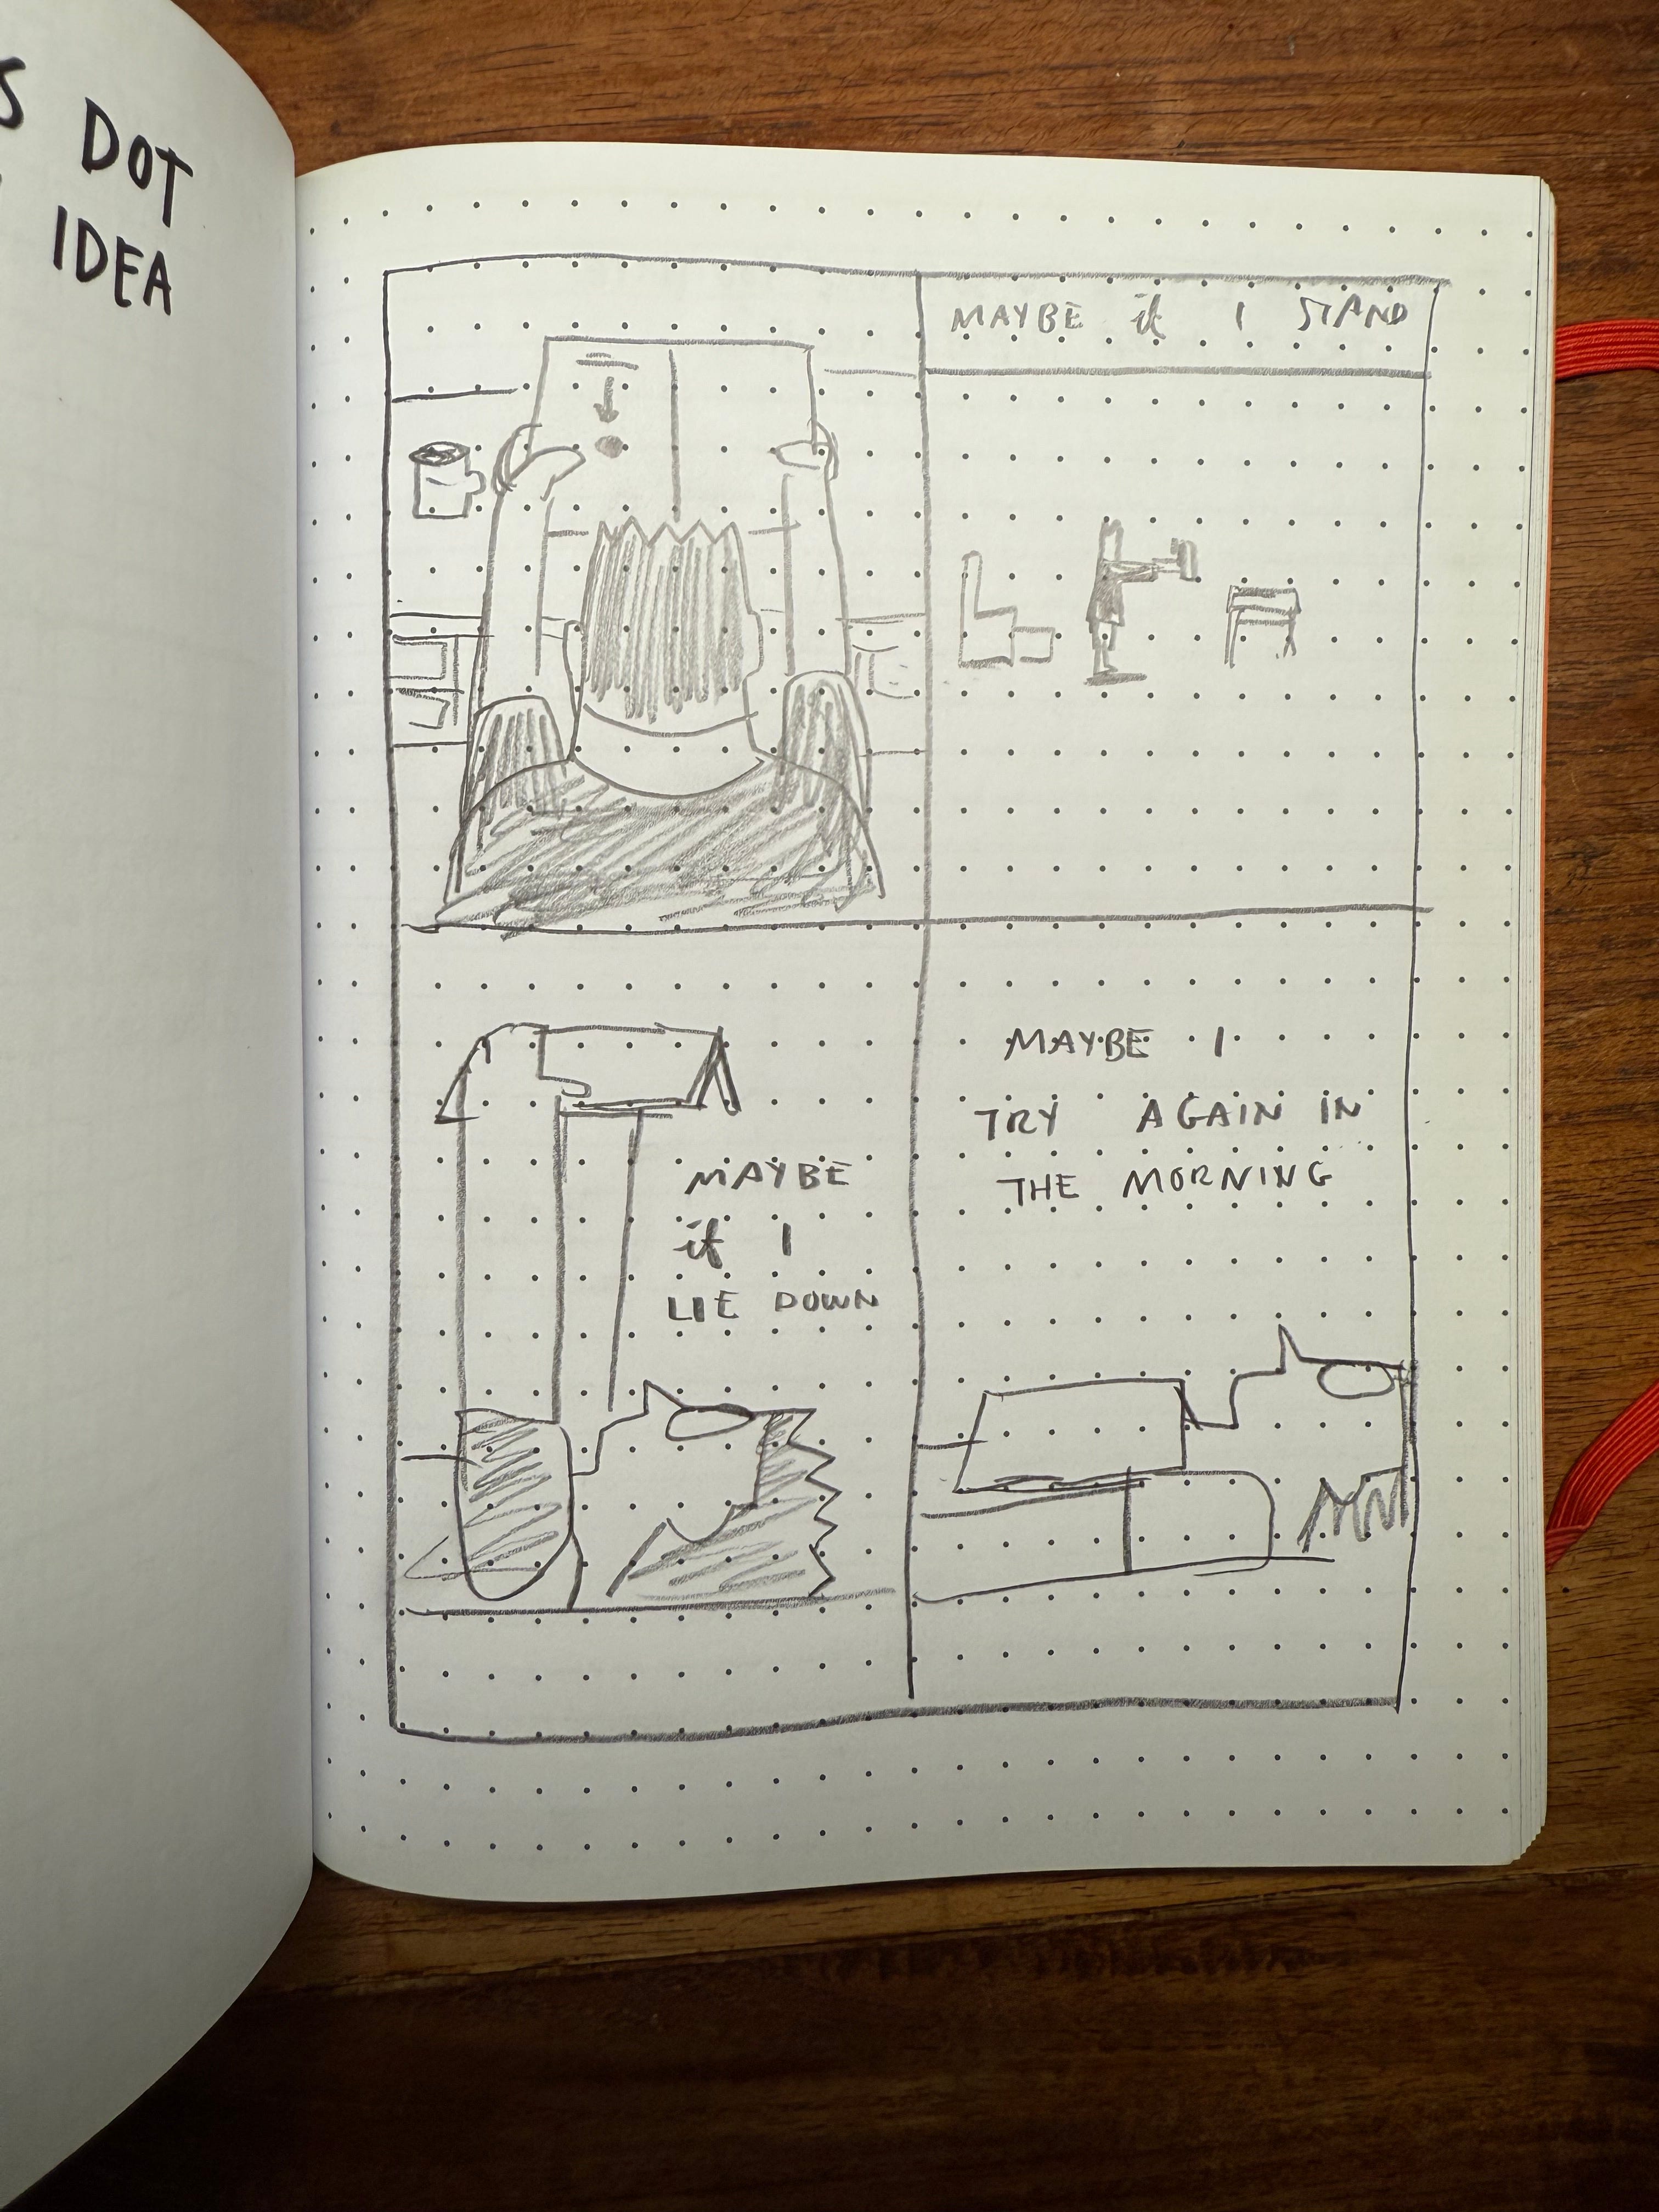 S
DOT
IDEA
MAYBE if I STAND
MAYBE
if I
LIE DOWN
MAYBE I
TRY AGAIN IN
THE MORNING